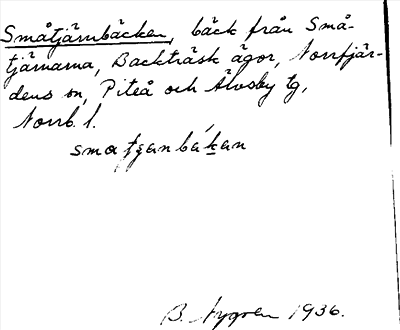 Småtjärnbäcken, bäck från Små-
tjärnarna, Backträsk ägor, Norrfjär-
dens sn, Piteå och Älvsby tg,
Norrb. l.
B. Nygren 1936.